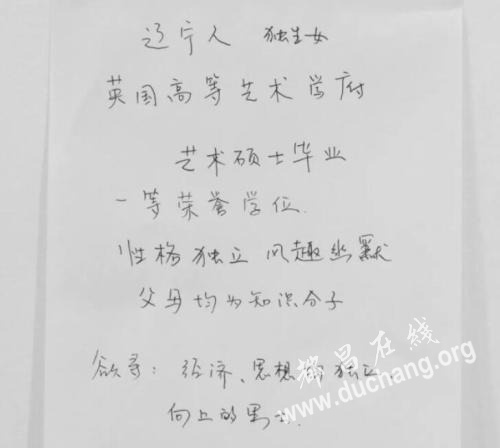 辽宁人 独生女
英国高等艺术学府
艺术硕士毕业
一等荣誉学位.
性格独立 风趣幽默
父母均为知识分子
欲寻: 经济、思想均独立
向上的男士.
都昌在线
www.duchang.org